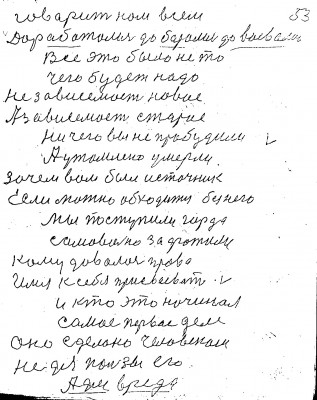 говорит ком всем 53
Доработолися до борамся до воевалоя
Все это было не то
чего будет надо
Независемост новое
Азависемост старое
Ничего вы не пробудили
Аутомлено умерли
Зачем вам был источник
Если можно обходит безнего
Мы поступили гордо
самовольно
Кому довалоя право
Имя ксебя присвоеват
и кто это ночинал
самое первое дело
Оно сделано человеком
не для ползы его
Адля вреда